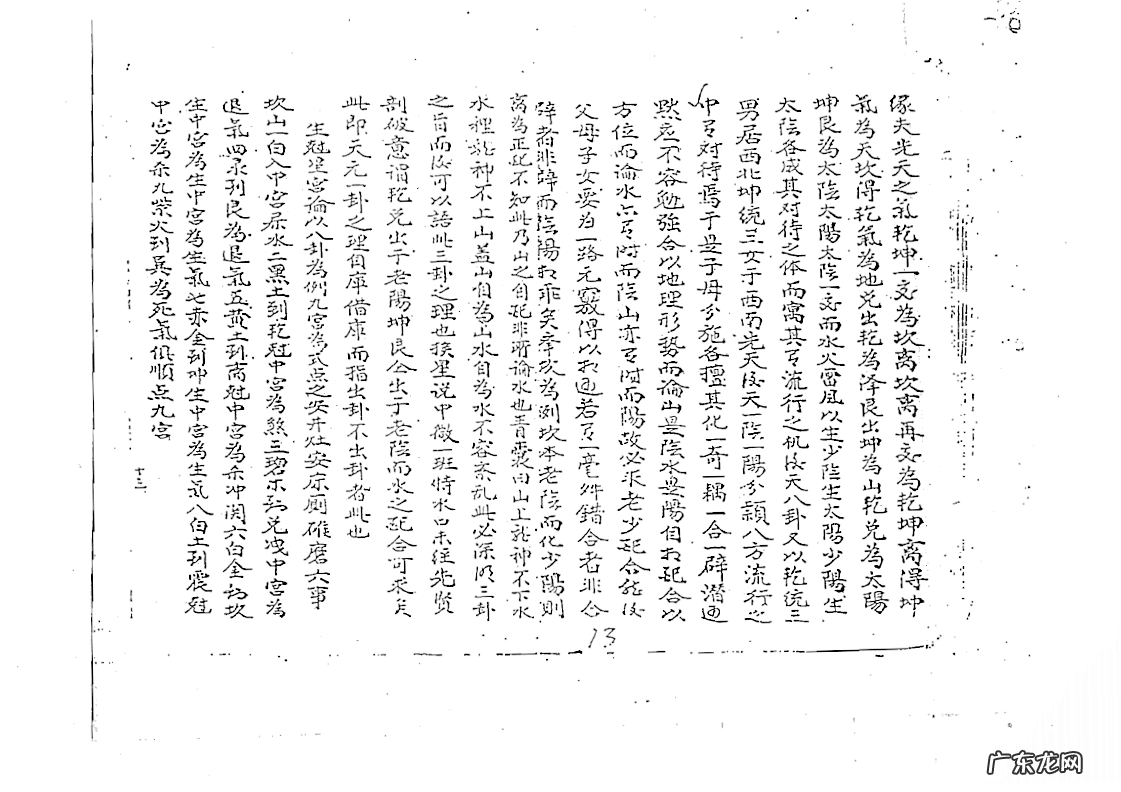 缘夫先天之氣乾坤一交為坎离坎离再交為乾坤离得坤
氣為天坎得乾氣為地兑出乾為泽艮出坤為山乾兑為太陽
坤艮為太陰太陽太陰一交而水火雷風以生少陰生太陽少陽生
太陰各成其对待之体而寓其有流行之机後天八卦又以乾統三
男居西北坤統三女于西南先天後天一陰一陽分顕八方流行之
中有对待焉于是子母分施各擅其化一奇一耦一合一辟潜通
黙应不容勉強合以地理形势而論山是陰水是陽自相配合以
方位而論水亦有时而陰山亦有时而陽故必求老少配合然後
父母子女要为一路元竅得以相通若有一毫舛錯合者非合
辟者非辟而陰陽相乖矣季坎為例坎本老陰而化少陽則
离為正配不知此乃山之自配非所論水也青囊曰山上龍神不下水
水裡龍神不上山盖山自為山水自為水不容紊乱此必深明三卦
之旨而後可以語此三卦之理也挨星说中微一班恃水口未经先贤
剖破意谓乾兑出于老陽坤艮公出丁老陰而水之配合可求矣
此即天元一卦之理自庫借庫而指出卦不出卦者此也
生尅坐宫論以八卦為例九宫為式点之安井灶安床厕碓磨六事
坎山一白入中宫係水二黑土到乾尅中宫為煞三碧木到兑洩中宫為
退氣四录到艮為退氣五黄土到离尅中宫為杀冲関六白金到坎
生中宫為生中宫為生氣七赤金到坤生中宫為生氣八白土到震尅
中宫為杀九紫火到巽為死氣俱順点九宫
十三
13
广东龙网